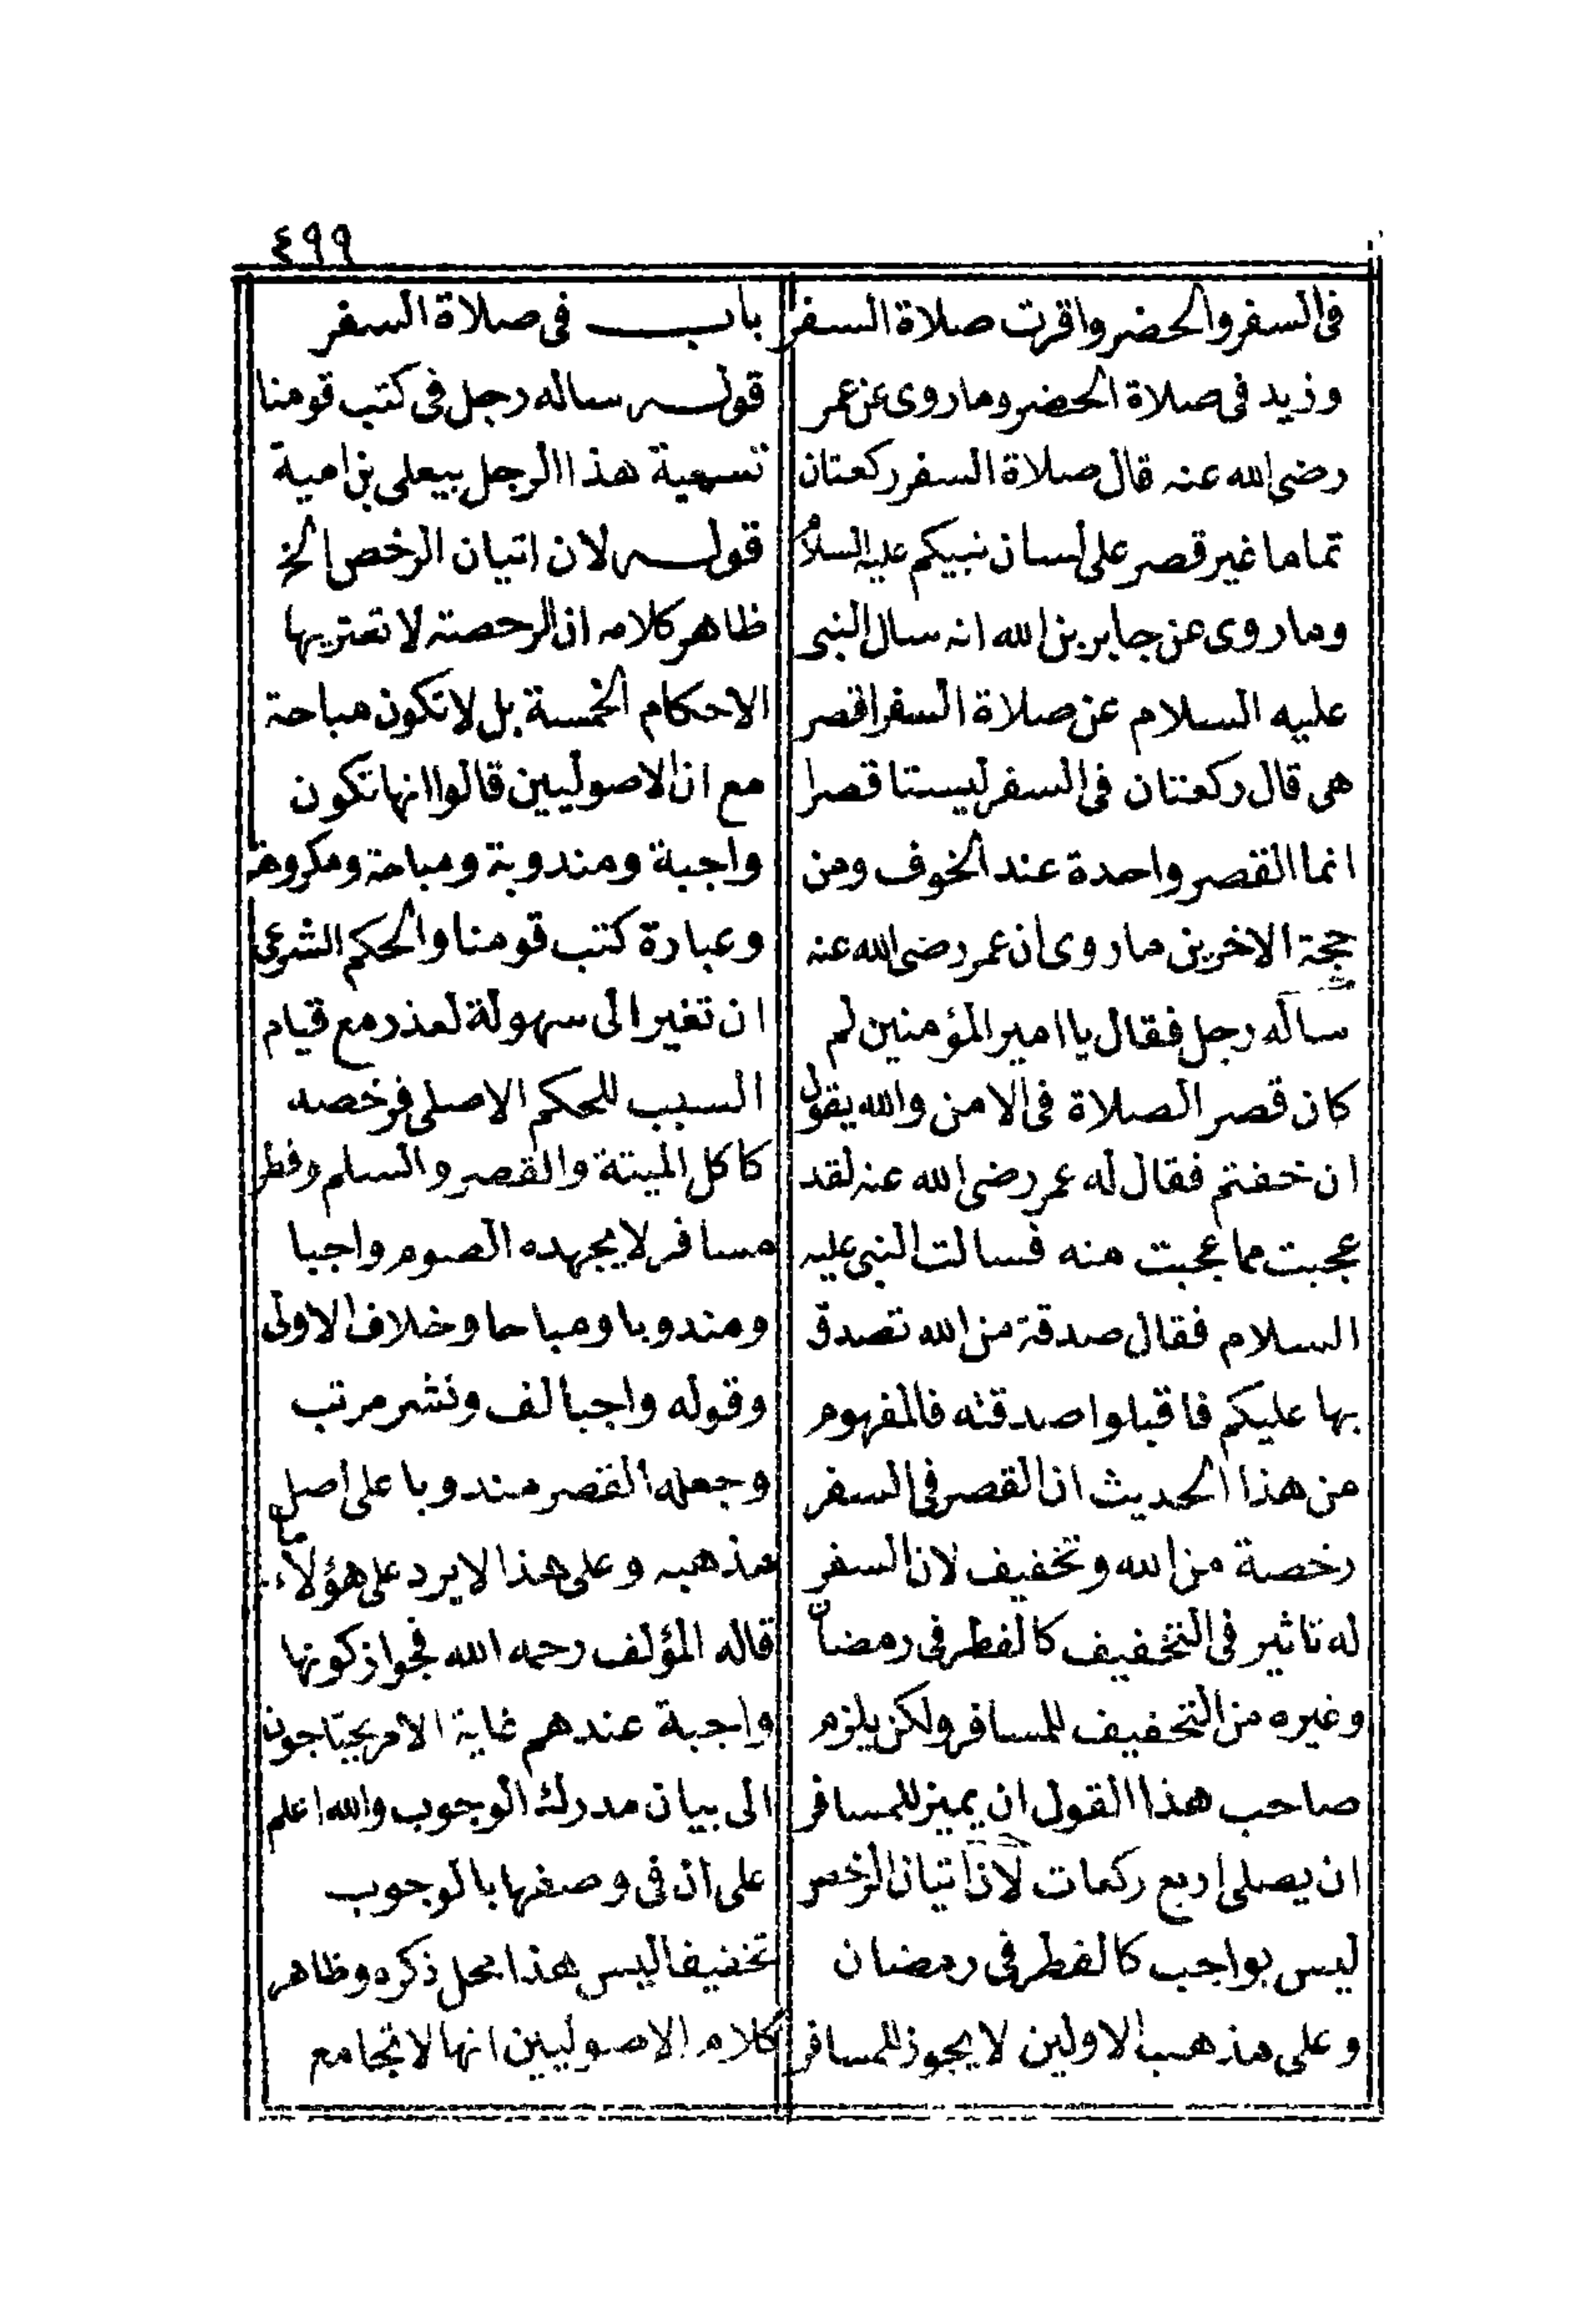 ٤٩٩
فى السفر والحضر واقرت صلاة السفر
وزيد فى صلاة الحضر وما روى عن عمر
رضى الله عنه قال صلاة السفر ركعتان
تماما غير قصر على لسان نبيكم عليه السلام
وما روى عن جابر بن الله انه سال النبى
عليه السلام عن صلاة السفر اقصر
هى قال ركعتان فى السفر ليستا قصرا
انما القصر واحدة عند الخوف ومن
حجة الاخرين ما روى ان عمر رضى الله عنه
ساله رجل فقال يا امير المؤمنين لم
كان قصر الصلاة فى الامن والله يقول
ان خفتم فقال له عمر رضى الله عنه لقد
عجبت مما عجبت منه فسالت النبى عليه
السلام فقال صدقة من الله تصدق
بها عليكم فاقبلوا صدقته فالمفهوم
من هذا الحديث ان القصر فى السفر
رخصة من الله وتخفيف لان السفر
له تاثير فى التخفيف كالفطر فى رمضان
وغيره من التخفيف للمسافر ولكن يلزم
صاحب هذا القول ان يميز للمسافر
ان يصلى اربع ركعات لان اتيان الرخص
ليس بواجب كالفطر فى رمضان
وعلى مذهب الاولين لا يجوز للمسافر
باب فى صلاة السفر
قوله ساله رجل فى كتب قومنا
تسمية هذا الرجل بيعلى بن امية
قوله لان اتيان الرخص الخ
ظاهر كلامه ان الرخصة لا تعتريها
الاحكام الخمسة بل لا تكون مباحة
مع ان الاصوليين قالوا انها تكون
واجبة ومندوبة ومباحة ومكروهة
وعبارة كتب قومنا والحكم الشرعى
ان تغير الى سهولة لعذر مع قيام
السبب للحكم الاصلى فرخصه
كاكل الميتة والقصر والسلم وفطر
مسافر لا يجهده الصوم واجبا
ومندوبا ومباحا وخلاف الاولى
وقوله واجبا لف ونشر مرتب
وجعله القصر مندوبا على اصل
مذهبه وعلى هذا لا يرد على هؤلاء ما
قاله المؤلف رحمه الله فجواز كونها
واجبة عندهم غاية الامر يحتاجون
الى بيان مدرك الوجوب والله اعلم
على ان فى وصفها بالوجوب
تخفيفا ليس هذا محل ذكره وظاهر
كلام الاصوليين انها لا تجامع